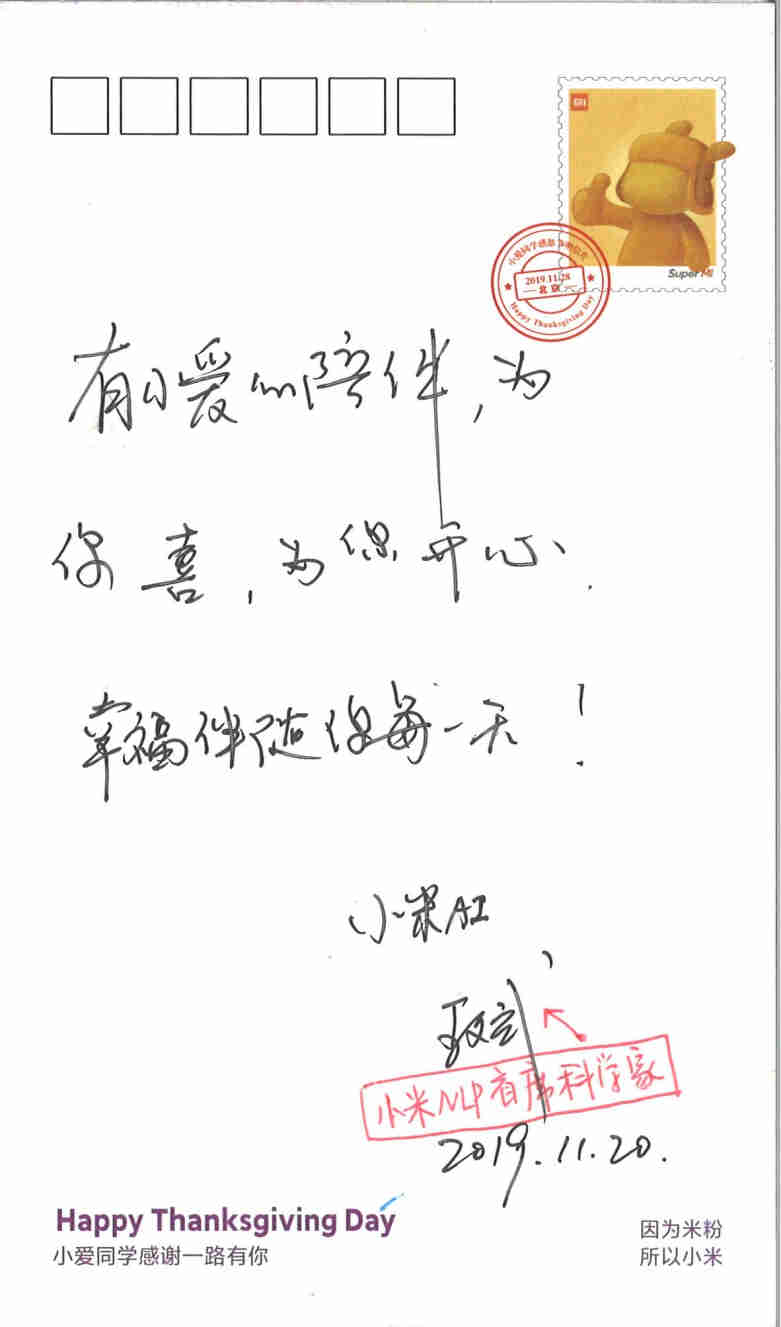 mi
Super MI
小爱同学感恩
2019.11.28
北京
Happy Thanksgiving Day
有小爱的陪伴，为
你喜，为你开心.
幸福伴随你每一天！
小米AI
王
小米NLP首席科学家
2019.11.20.
Happy Thanksgiving Day
小爱同学感谢一路有你
因为米粉
所以小米